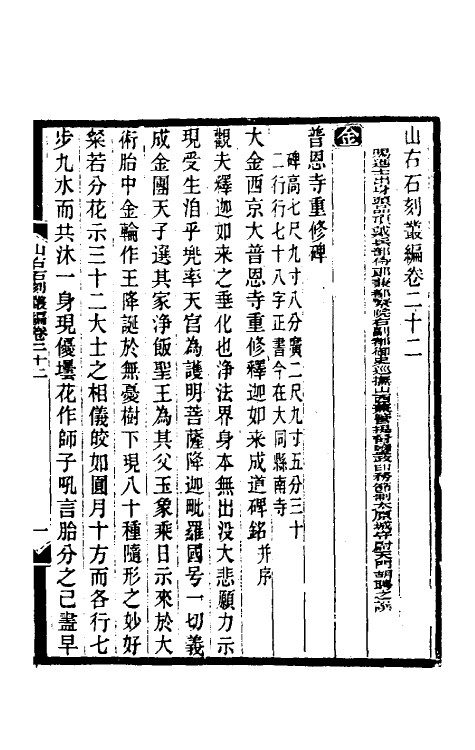 山右石刻叢編卷二十二
賜進士出身頭品頂戴兵部侍郎兼都察院右副都御史巡撫山西兼管提督鹽政印務節制太原城守尉天門胡聘之撰
金
普恩寺重修碑
碑高七尺九寸八分廣二尺九寸五分三十
二行行七十八字正書今在大同縣南寺
大金西京大普恩寺重修釋迦如来成道碑銘并序
觀夫釋迦如来之垂化也浄法界身本無出没大悲願力示
現受生洎乎兠率天宮為護明菩薩降迦毗羅國号一切義
成金團天子選其家浄飯聖王為其父玉象乗日示來於大
術胎中金輪作王降誕於無憂樹下現八十種隨形之妙好
粲若分花示三十二大士之相儀皎如圓月十方而各行七
步九水而共沐一身現優曇花作師子吼言胎分之已盡早
山右石刻叢編卷二十二
一